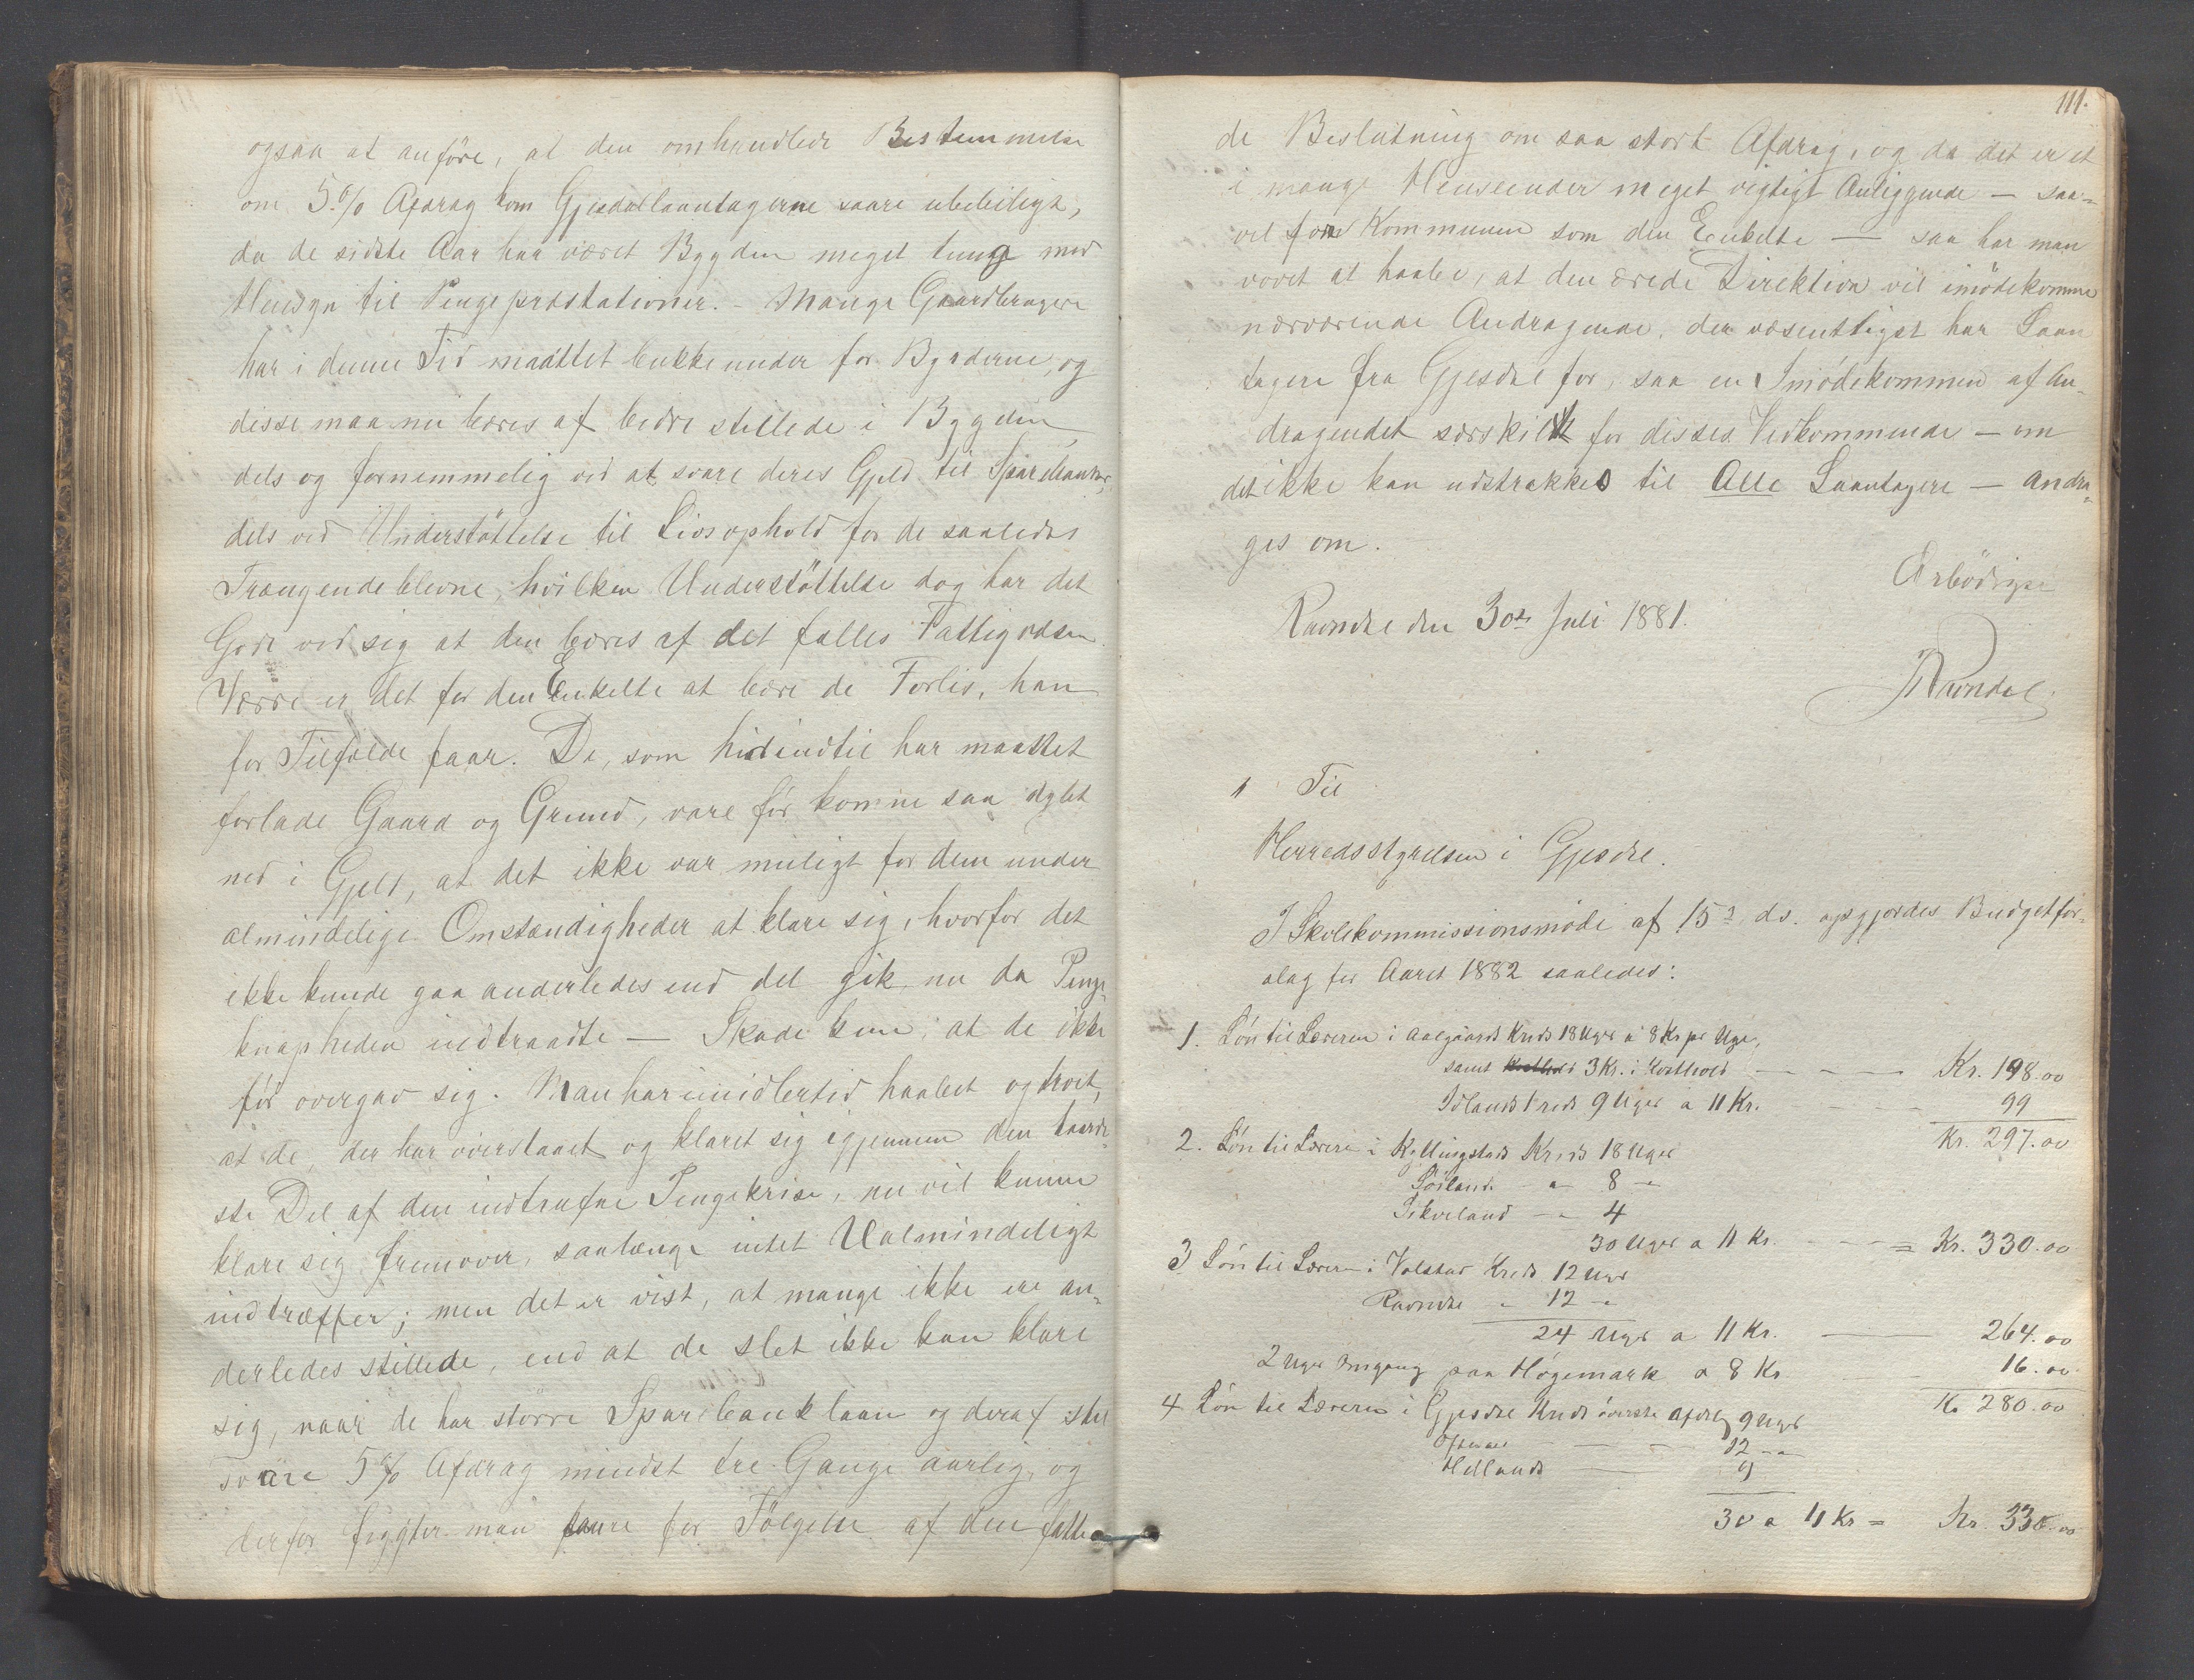 ogsaa at anføre, at den omhandlede Bestemmelse
om 5% Afdrag kom Gjesdallaantagerne saare ubeleiligt,
da de sidste Aar har været Bygden meget tunge med
Hensyn til Pengepræstationer. - Mange Gaardbrugere
har i denne Tid maattet bukke under for Byrderne, og
disse maa nu bæres af bedre stillede i Bygden
dels og fornemmelig ved at svare deres Gjeld til Sparebanker,
dels ved Understøttelse til Livsophold for de saaledes
Trængende blevne, hvilken Understøttelse dog har det
Gode ved sig at den bæres af det fælles Fattigvæsen.
Værre er det for den Enkelte at bære de Forlis, han
for Tilfælde faar. De, som hidindtil har maattet
forlade Gaard og Grund, vare før komne saa dybt
ned i Gjeld, at det ikke var muligt for dem under
almindelige Omstændigheder at klare sig, hvorfor det
ikke kunde gaa anderledes end det gik nu da Penge-
knapheden indtraadte — Skade kun, at de ikke
før overgav sig. Man har imidlertid haabet og troet,
at de, der har overstaaet og klaret sig igjennem den haarde-
ste Del af den indtrufne Pengekrise, nu vil kunne
klare sig fremover, saalænge intet Ualmindeligt
indtræffer; men det er vist, at mange ikke ere an-
derledes stillede, end at de slet ikke kan klare
sig, naar de har større Sparebanklaan og deraf skal
svare 5% Afdrag mindst tre Gange aarlig, og
derfor frygter man saare for Følgelse af den fatte-
111.
de Beslutning om saa stort Afdrag, og da det er et
i mange Henseender meget vigtigt Anliggende — saa-
vel for Kommunen som den Enkelte — saa har man
vovet at haabe, at den ærede Direktion vil imødekomme
nærværende Andragende, der væsentligst har Laan
tagere fra Gjesdal for, saa en Imødekommen af An-
dragendet særskilt for disses Vedkommende — om
det ikke kan udstrækkes til Alle Laantagere — andra-
ges om.
Ærbødigst
Ravndal den 30te Juli 1881.
Ravndal
Til
Herredsstyrelsen i Gjesdal.
I Skolekommissionsmøde af 15de ds. opgjordes Budgetfor-
slag for Aaret 1882 saaledes:
1. Løn til Læreren i Aalgaards Kreds 18 Uger a 8 Kr pr Uge,
samt Kosthold 3 Kr. i Kosthold — Kr. 198.00
Edlands Kreds 9 Uger a 11 Kr. 99
Kr. 297.00
2. Løn til Læreren i Kyllingstads Kreds 18 Uger
Søiland - " - 8 "
Skurveland - " 4
30 Uger a 11 Kr. - = Kr. 330.00
3 Løn til Læreren i Volstad Kreds 12 Uger
Ravndal " 12 "
24 Uger a 11 Kr. — 264.00
2 Uger Omgang paa Høgemark a 8 Kr 16.00
Kr 280.00
4 Løn til Læreren i Gjesdal Kreds øverste Afdelg 9 Uger
Oftedal — 12 "
Hellands — 9
30 a 11 Kr = Kr. 330.00